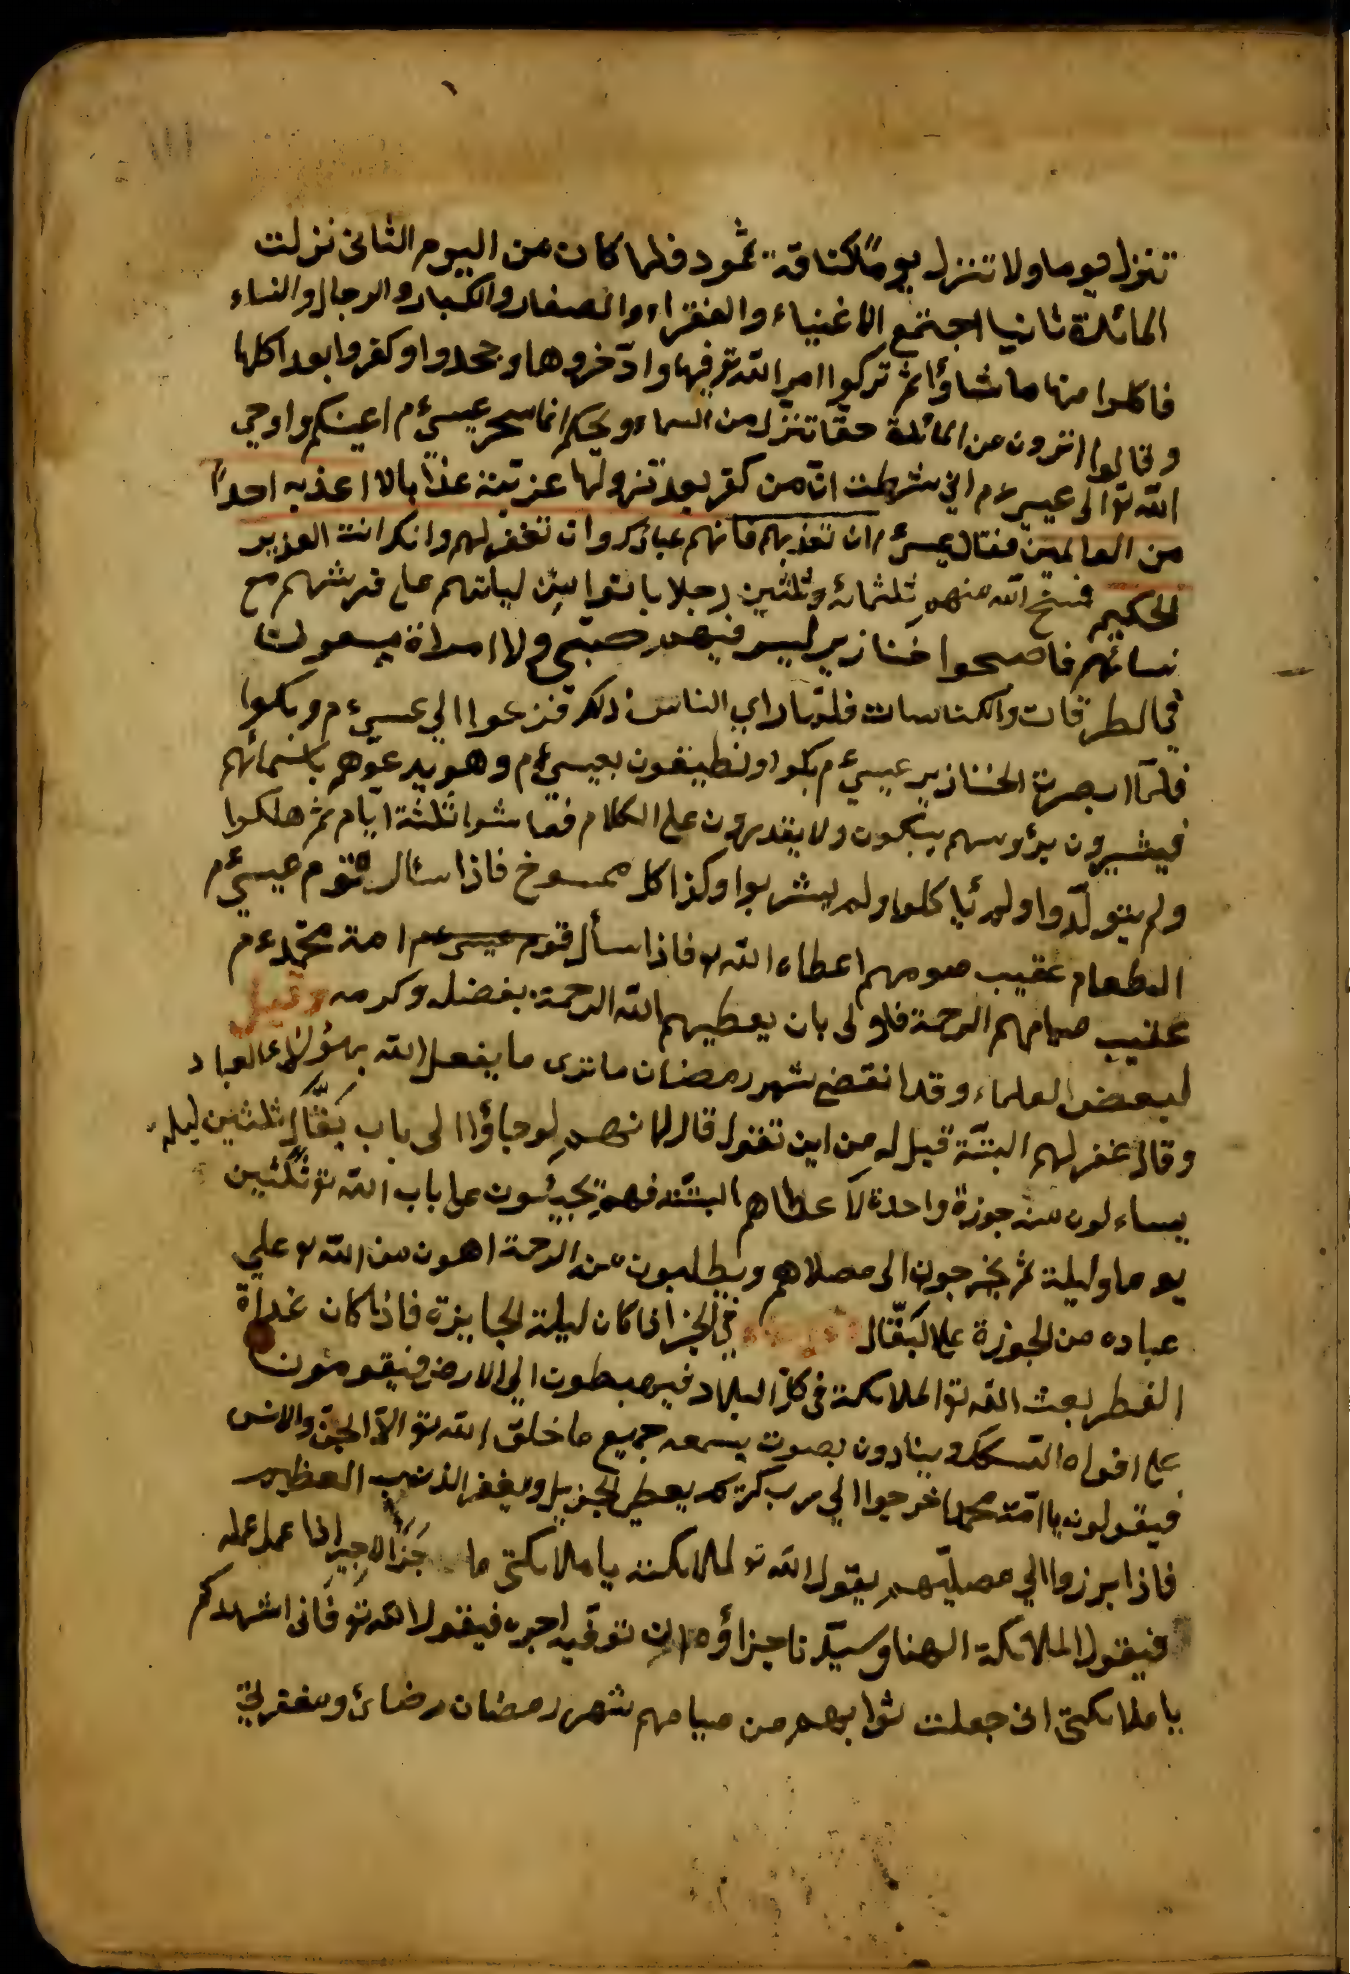 تنزل يوما ولا تنزل يومًا كناقة ثمود فلما كان من اليوم الثانى نزلت
المائدة ثانيا اجتمع الاغنياء والفقراء والصغار والكبار والرجال والنساء
فاكلوا منها ما شاؤا ثم تركوا امر الله تع فيها وادّخروها وجحدوا وكفروا بعد اكلها
وقالوا اترون من المائدة حقا تنزل من السماء ويحكم انما سحر عيسى ع م اعينكم واوحي
الله تع الى عيسى ع م اني شرطت انّ من كفر بعد تنزولها عذبته عذابا لا اعذبه احدًا
من العالمين فقال عيسى ع م ان تعذبهم فانهم عبادك وان تغفر لهم وانك انت العزيز
الحكيم فمسخ الله منهم ثلثمائة وثلثين رجلا باتوا من ليلتهم على فرشهم مع
نسائهم فاصبحوا خنازير ليس فيهم صبيّ ولا امراة يسعون
في الطرقات والكناسات فلمّا راي الناس ذلك فزعوا الي عيسى ع م وبكوا
فلمّا ابصرت الخنازير عيسى ع م بكوا ويطيفون بعيسى ع م وهو يدعوهم باسمائهم
فيشيرون برؤوسهم يبكون ولا يقدرون على الكلام فعاشوا ثلثة ايّام ثم هلكوا
ولم يتولّدوا ولم يأكلوا ولم يشربوا وكذا كل ممسوخ فاذا سأل قوم عيسى ع م
الطعام عقيب صومهم اعطاه الله تع فاذا سأل قوم عيسى ع م امة محمّد ع م
عقيب صيامهم الرحمة فاولى بان يعطيهم الله الرحمة بفضله وكرمه وقيل
لبعض العلماء وقد انقضى شهر رمضان ما ترى ما يفعل الله بهؤلاء العباد
وقال غفر لهم البتّة قيل له من اين تقول قال لانهم لو جاؤا الى باب بقّال ثلثين ليلة
يساءلون منه جوزة واحدة لاعطاهم البتّة فهم يجيئون على باب الله تع ثلثين
يوما وليلة ثم يخرجون الى مصلاهم ويطلبون منه الرحمة اهون من الله تع علي
عباده من الجوزة على البقّال في الخبر اذا كان ليلة الجايزة فاذا كان غداة
الفطر بعث الله تع الملائكة في كل البلاد فيهبطون الي الارض فيقومون
على افواه السكك وينادون بصوت يسمعه جميع ما خلق الله تع الّا الجنّ والانس
فيقولون يا امّة محمد اخرجوا الي رب كريم يعطي الجزيل ويغفر الذنب العظيم
فاذا برزوا الي مصلّيهم يقول الله تع لملائكته يا ملائكتى ما جَزَاء الاجير اذا عمل عمله
فيقول الملائكة الهنا وسيّدنا جزاؤه ان توفّيه اجره فيقول الله تع فَانى اشهدكم
يا ملائكتى انى جعلت ثوابهم من صيامهم شهر رمضان رضائ ومغفرتي